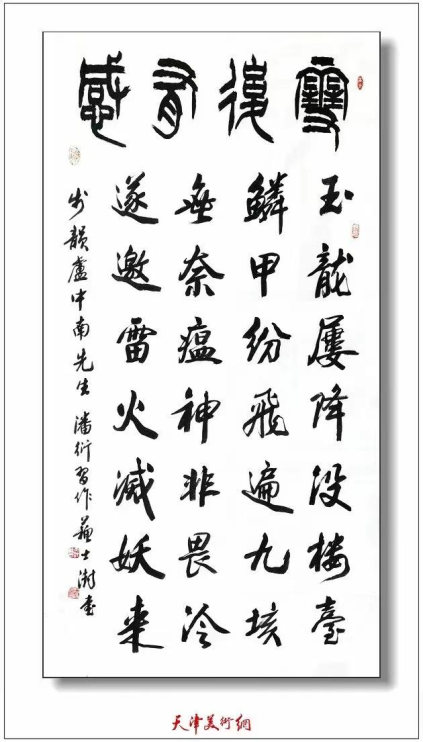 雪後有感
玉龍屢降没樓臺
鱗甲紛飛遍九垓
無奈瘟神非畏冷
遂邀雷火滅妖來
步韻盧中南先生 潘衍習作 蘇士澍書
天津美術網